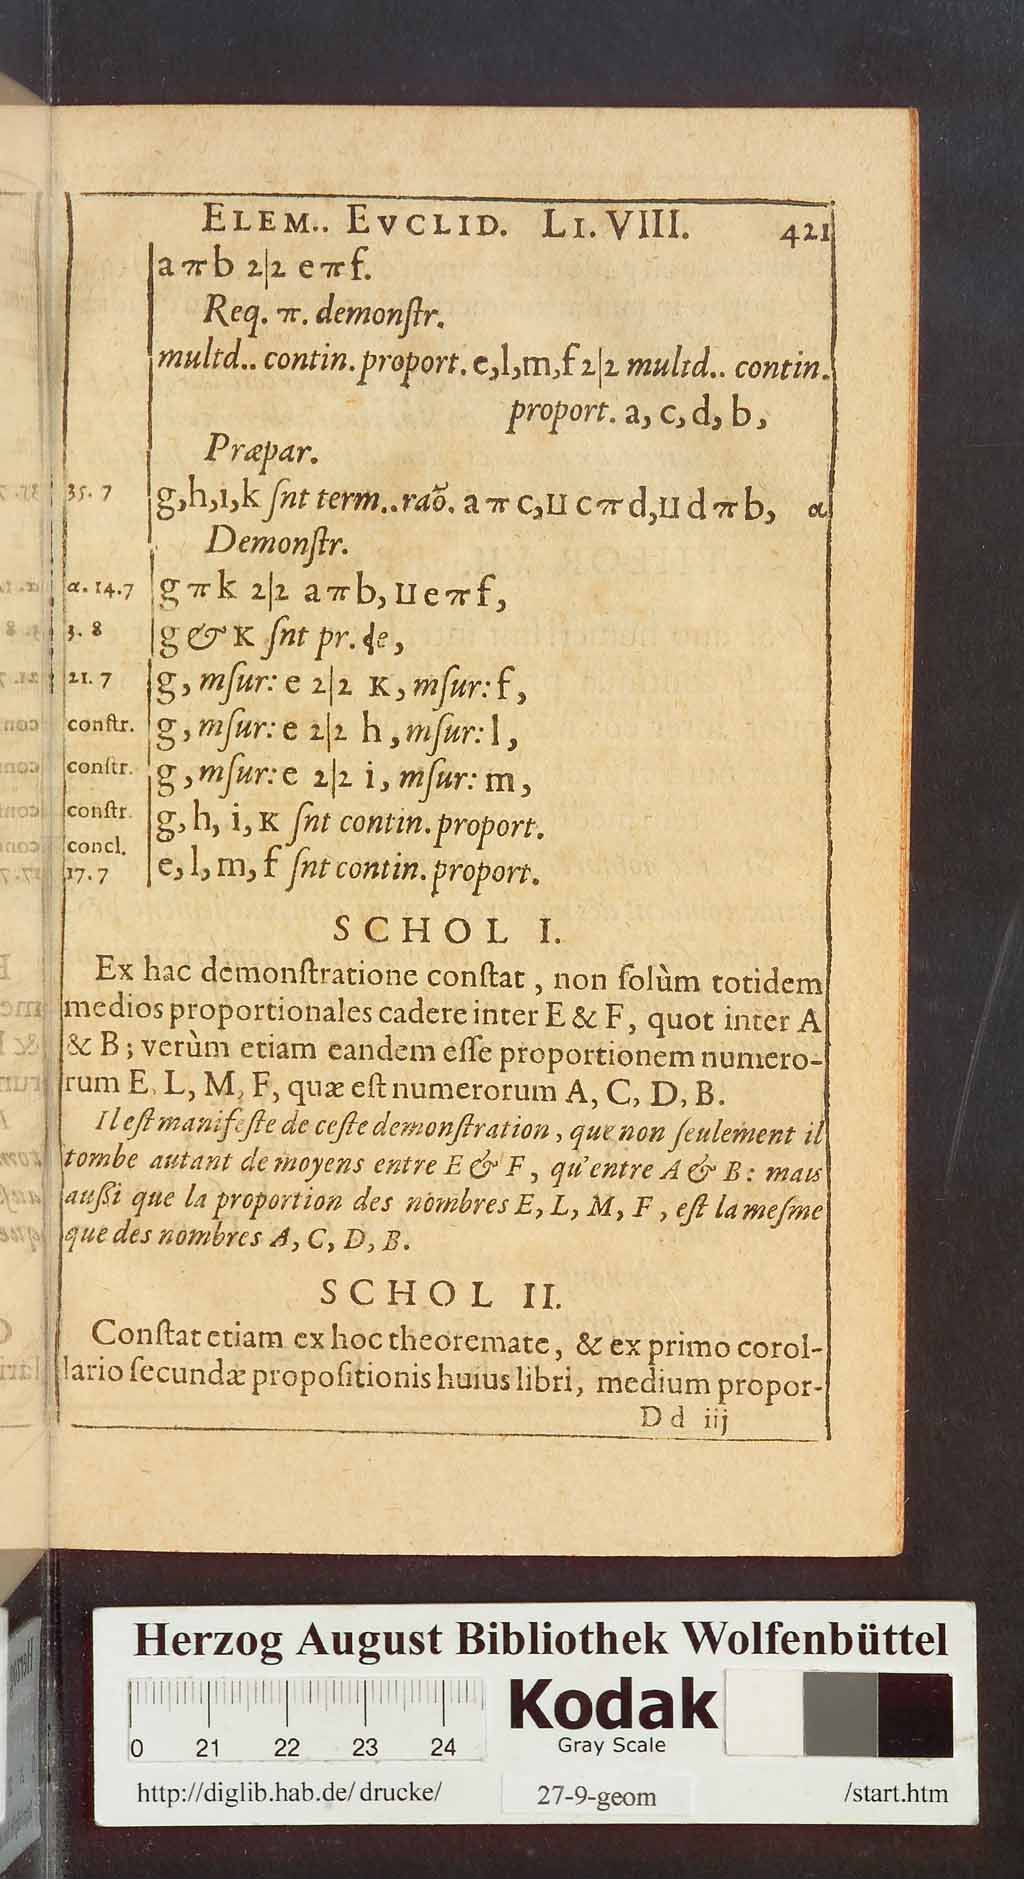 ELEM.. EVCLID. LI. VIII. 421
a π b 2|2 e π f.
Req. π. demonſtr.
multd.. contin. proport. e,l,m,f 2|2 multd.. contin.
proport. a, c, d, b,
Præpar.
35. 7 g,h,ı,k ſnt term..raõ. a π c, II c π d, II d π b, α
Demonſtr.
α. 14.7 g π k 2|2 a π b, II e π f,
3. 8 g & K ſnt pr. đe,
21. 7 g, mſur: e 2|2 K, mſur: f,
conſtr. g, mſur: e 2|2 h, mſur: l,
conſtr. g, mſur: e 2|2 i, mſur: m,
conſtr. g, h, i, K ſnt contin. proport.
concl.
17. 7 e, l, m, f ſnt contin. proport.
SCHOL I.
Ex hac demonſtratione conſtat, non ſolùm totidem
medios proportionales cadere inter E & F, quot inter A
& B; verùm etiam eandem eſſe proportionem numero-
rum E, L, M, F, quæ eſt numerorum A, C, D, B.
Il eſt manifeſte de ceſte demonſtration, que non ſeulement il
tombe autant de moyens entre E & F, qu'entre A & B: mais
auſſi que la proportion des nombres E, L, M, F, eſt la meſme
que des nombres A, C, D, B.
SCHOL II.
Conſtat etiam ex hoc theoremate, & ex primo corol-
lario ſecundæ propoſitionis huius libri, medium propor-
D d iij
Herzog August Bibliothek Wolfenbüttel
0 21 22 23 24
Kodak
Gray Scale
http://diglib.hab.de/drucke/ 27-9-geom /start.htm